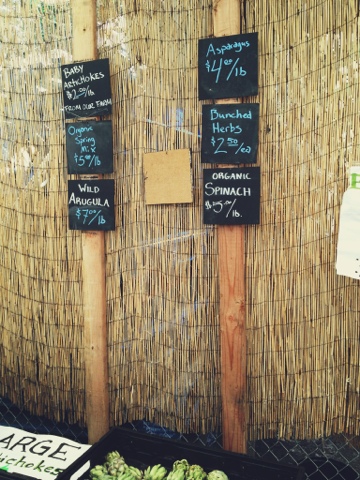 BABY
ARTICHOKES
$2.50/lb
FROM OUR FARM
Organic
Spring
Mix
$5.00/lb
WILD
ARUGULA
$7.00/lb
Asparagus
$4.00/lb
Bunched
Herbs
$2.50/ea
ORGANIC
SPINACH
/lb.
ARGE
tichokes